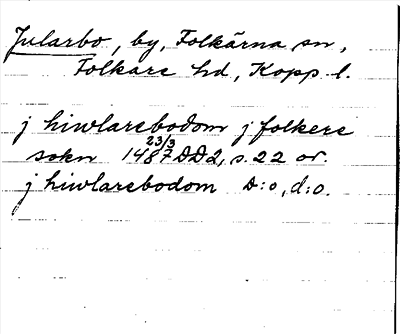 Jularbo, by, Folkärna sn,
Folkare hd, Kopp. l.
j hiwlarebodom j folkere
sokn 1487 23/3 DD2, s. 22 or.
j hiwlarebodom D:o, d:o.